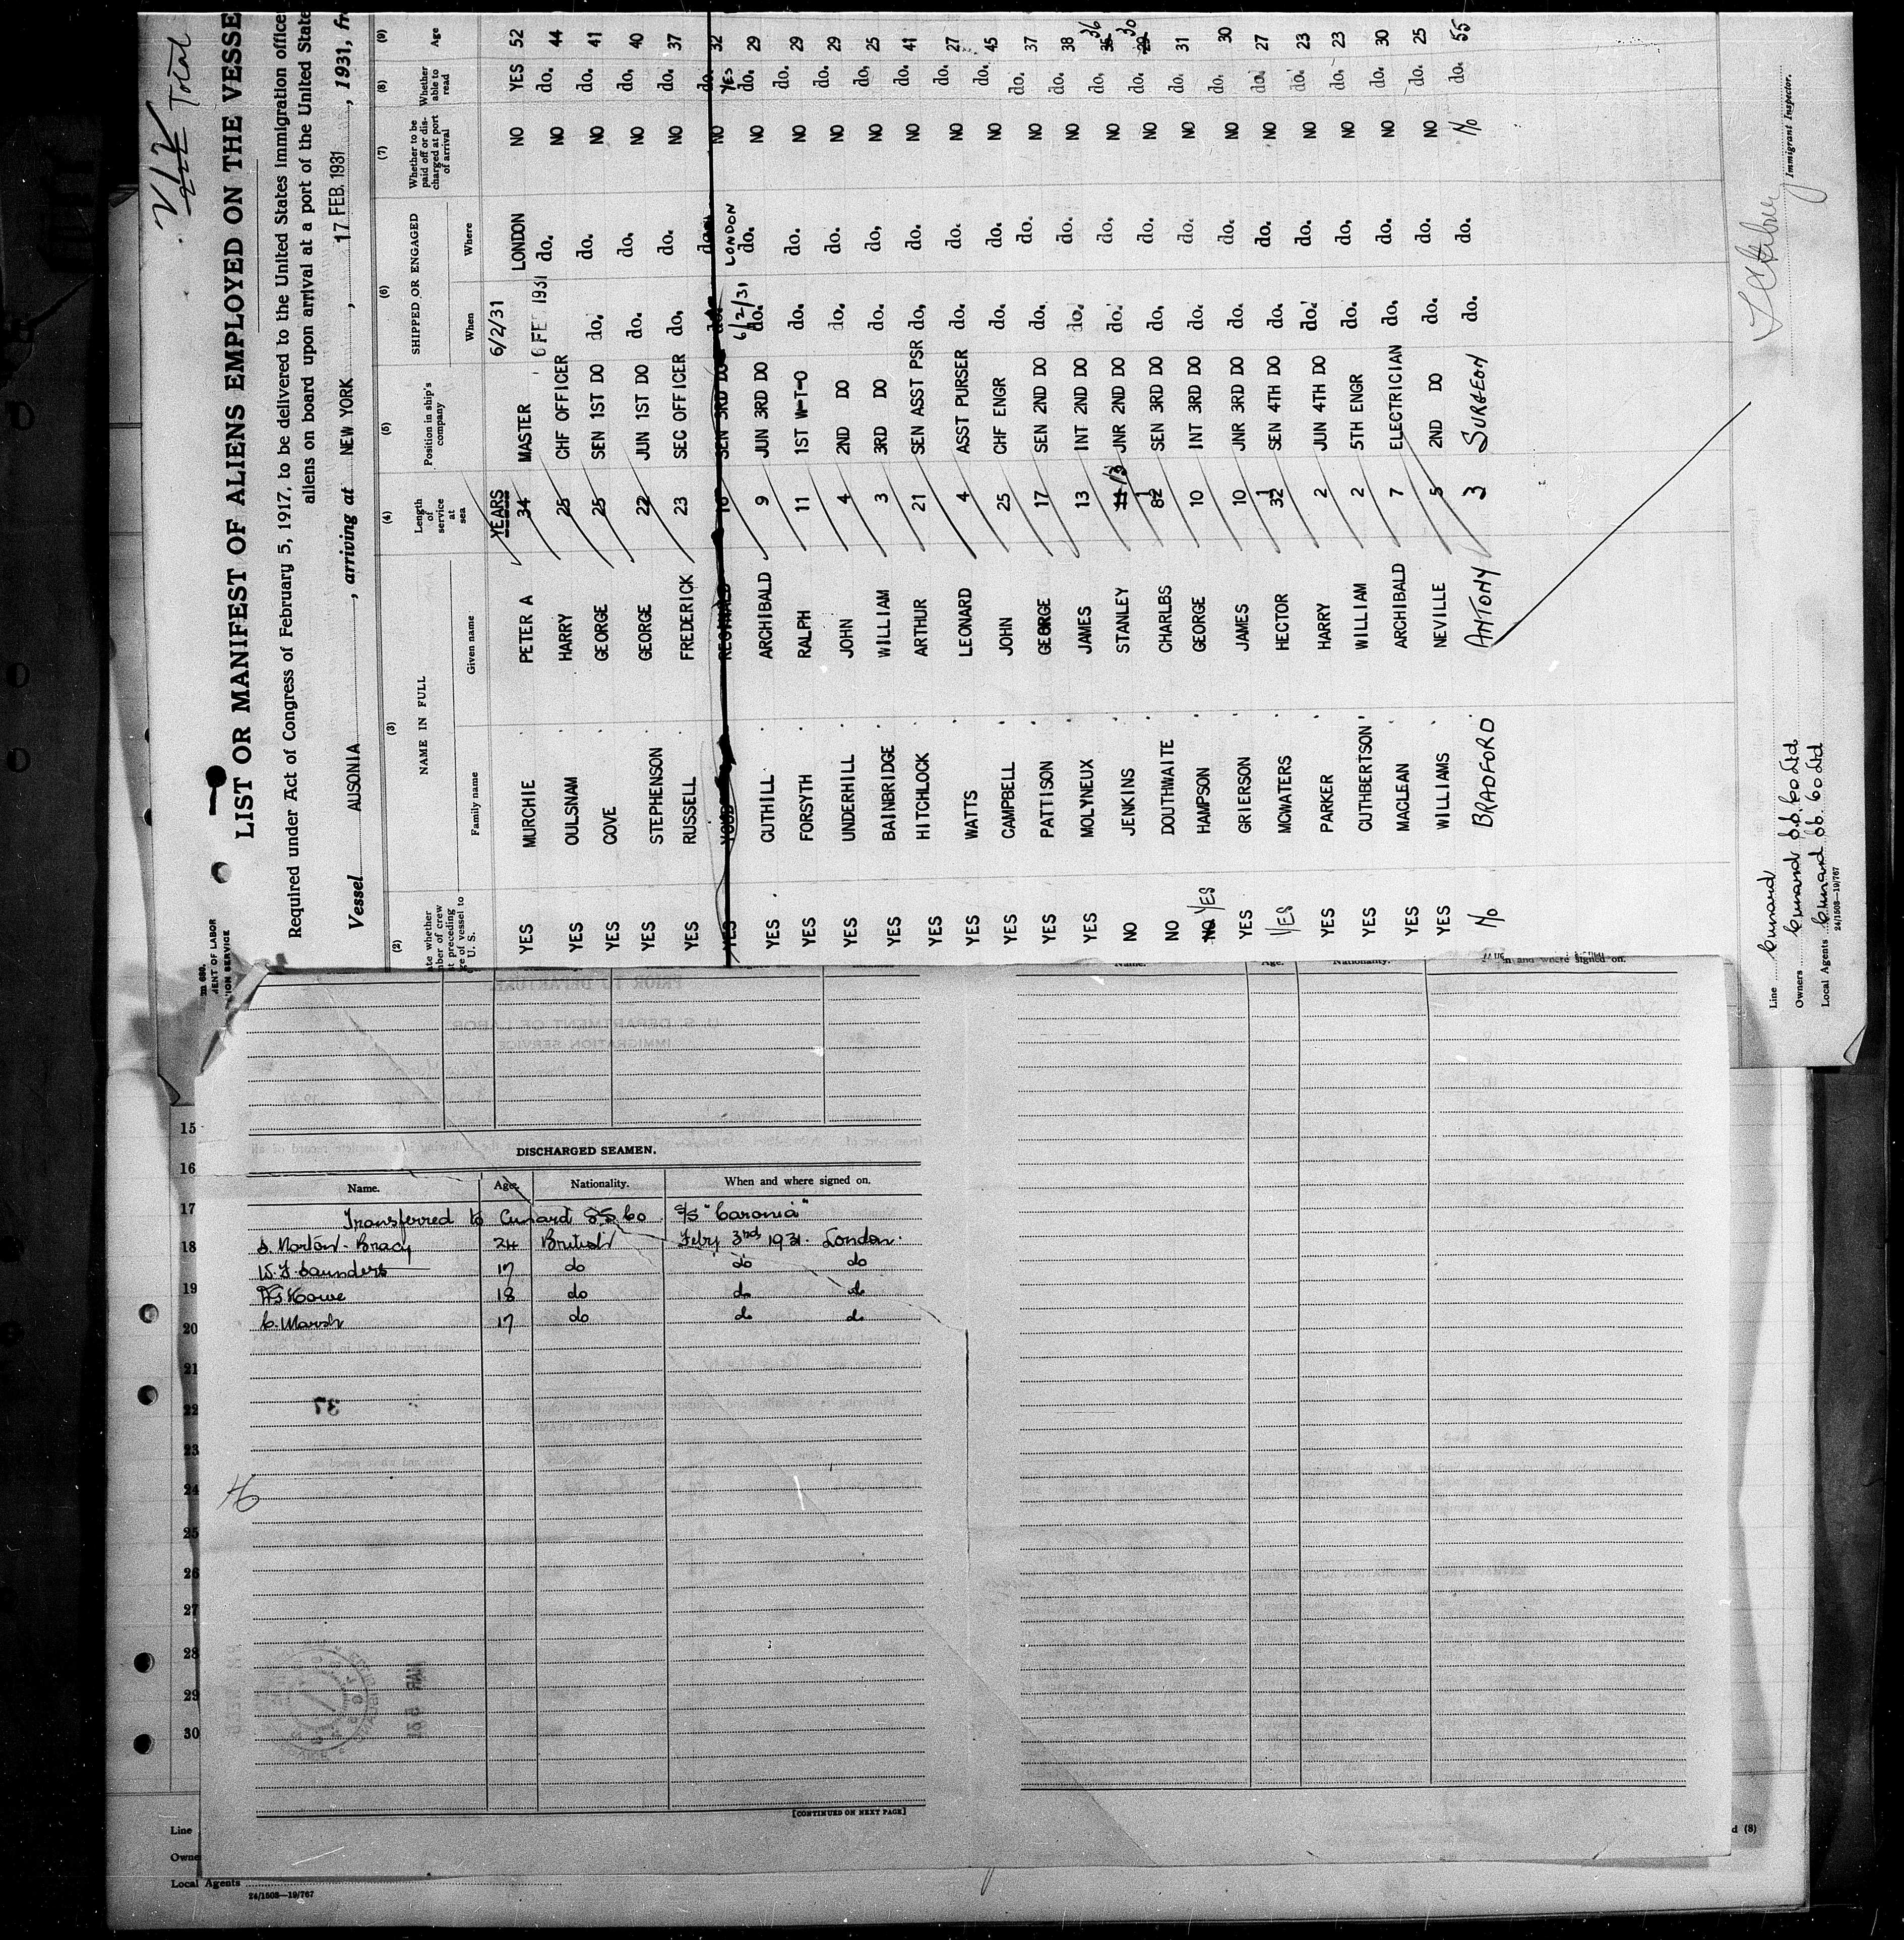 V 1/2 Total
LIST OR MANIFEST OF ALIENS EMPLOYED ON THE VESSE
Required under Act of Congress of February 5, 1917, to be delivered to the United States immigration office
aliens on board upon arrival at a port of the United State
Vessel AUSONIA , arriving at NEW YORK , 17 FEB. 1931 , 1931, fr
MENT OF LABOR
TION SERVICE
(2) (3) (4) (5) (6) (7) (8) (9)
NAME IN FULL
SHIPPED OR ENGAGED
Family name Given name Length of service at sea Position in ship's company When Where Whether to be paid off or discharged at port of arrival Whether able to read Age
YEARS
YES MURCHIE PETER A 34 MASTER 6/2/31 LONDON NO YES 52
YES OULSNAM HARRY 25 CHF OFFICER 6 FEB 1931 do. NO do. 44
YES COVE GEORGE 25 SEN 1ST DO do. do. NO do. 41
YES STEPHENSON GEORGE 22 JUN 1ST DO do. do. NO do. 40
YES RUSSELL FREDERICK 23 SEC OFFICER do. do. NO do. 37
YES REGINALD SEN 3RD DO do. NO do. 32
YES CUTHILL ARCHIBALD 9 JUN 3RD DO 6/2/31 do. LONDON do. NO YES do. 29
YES FORSYTH RALPH 11 1ST W-T-O do. do. NO do. 29
YES UNDERHILL JOHN 4 2ND DO do. do. NO do. 29
YES BAINBRIDGE WILLIAM 3 3RD DO do. do. NO do. 25
YES HITCHLOCK ARTHUR 21 SEN ASST PSR do. do. NO do. 41
YES WATTS LEONARD 4 ASST PURSER do. do. NO do. 27
YES CAMPBELL JOHN 25 CHF ENGR do. do. NO do. 45
YES PATTISON GEORGE 17 SEN 2ND DO do. do. NO do. 37
YES MOLYNEUX JAMES 13 INT 2ND DO do. do. NO do. 38
NO JENKINS STANLEY 11 13 JNR 2ND DO do. do. NO do. 35 36
NO DOUTHWAITE CHARLBS 8 1/2 SEN 3RD DO do. do. NO do. 29 30
NO YES HAMPSON GEORGE 10 INT 3RD DO do. do. NO do. 31
YES GRIERSON JAMES 10 JNR 3RD DO do. do. NO do. 30
YES MCWATERS HECTOR 3 1/2 SEN 4TH DO do. do. NO do. 27
YES PARKER HARRY 2 JUN 4TH DO do. do. NO do. 23
YES CUTHBERTSON WILLIAM 2 5TH ENGR do. do. NO do. 23
YES MACLEAN ARCHIBALD 7 ELECTRICIAN do. do. NO do. 30
YES WILLIAMS NEVILLE 5 2ND DO do. do. NO do. 25
No BRADFORD ANTONY 3 SURGEON do. do. No do. 55
Immigrant Inspector.
Line Cunard
Owners Cunard S.S. Co Ltd
Local Agents Cunard SS. Co Ltd
24/1508—19/767
Name. Age. Nationality. When and where signed on.
DISCHARGED SEAMEN.
Name. Age. Nationality. When and where signed on.
Transferred to Cunard SS Co S/S "Caronia"
S. Norton-Bracy 24 British Feby 3rd 1931. London.
W.F. Saunders 17 do do do
Howe 18 do do do
C. Marsh 17 do do do
[CONTINUED ON NEXT PAGE]
15
16
17
18
19
20
21
22
23
24
25
26
27
28
29
30
Line
Owne
Local Agents
24/1508—19/767
d (8)